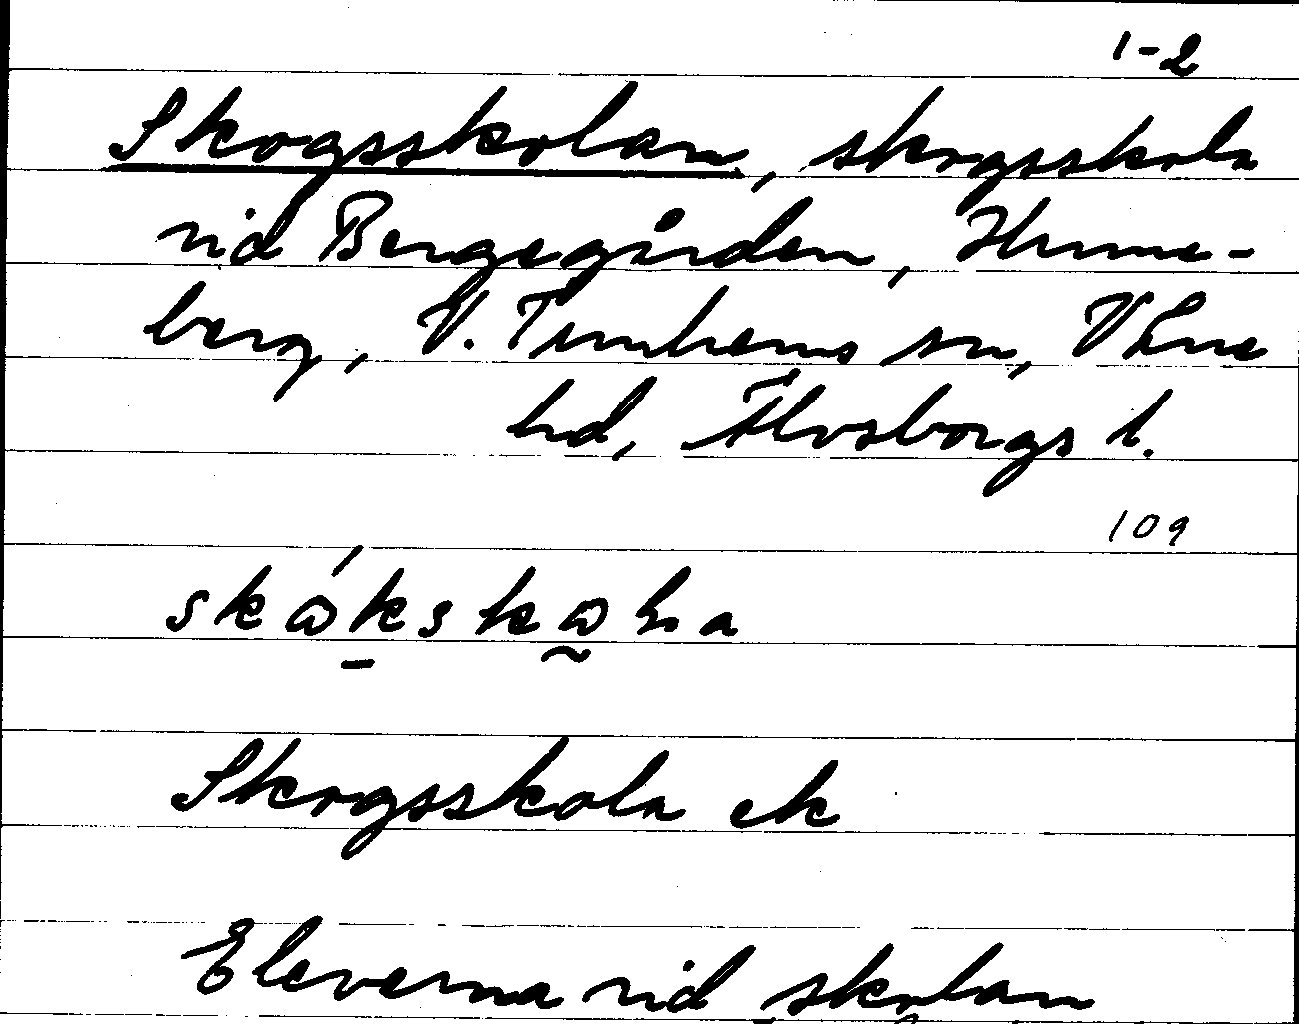 1-2
Skogsskolan, skogsskola
vid Bergagården, Hunne-
berg, V. Tunhems sn, Väne
hd, Älvsborgs l.
109
Skogsskola ek
Eleverna vid skolan